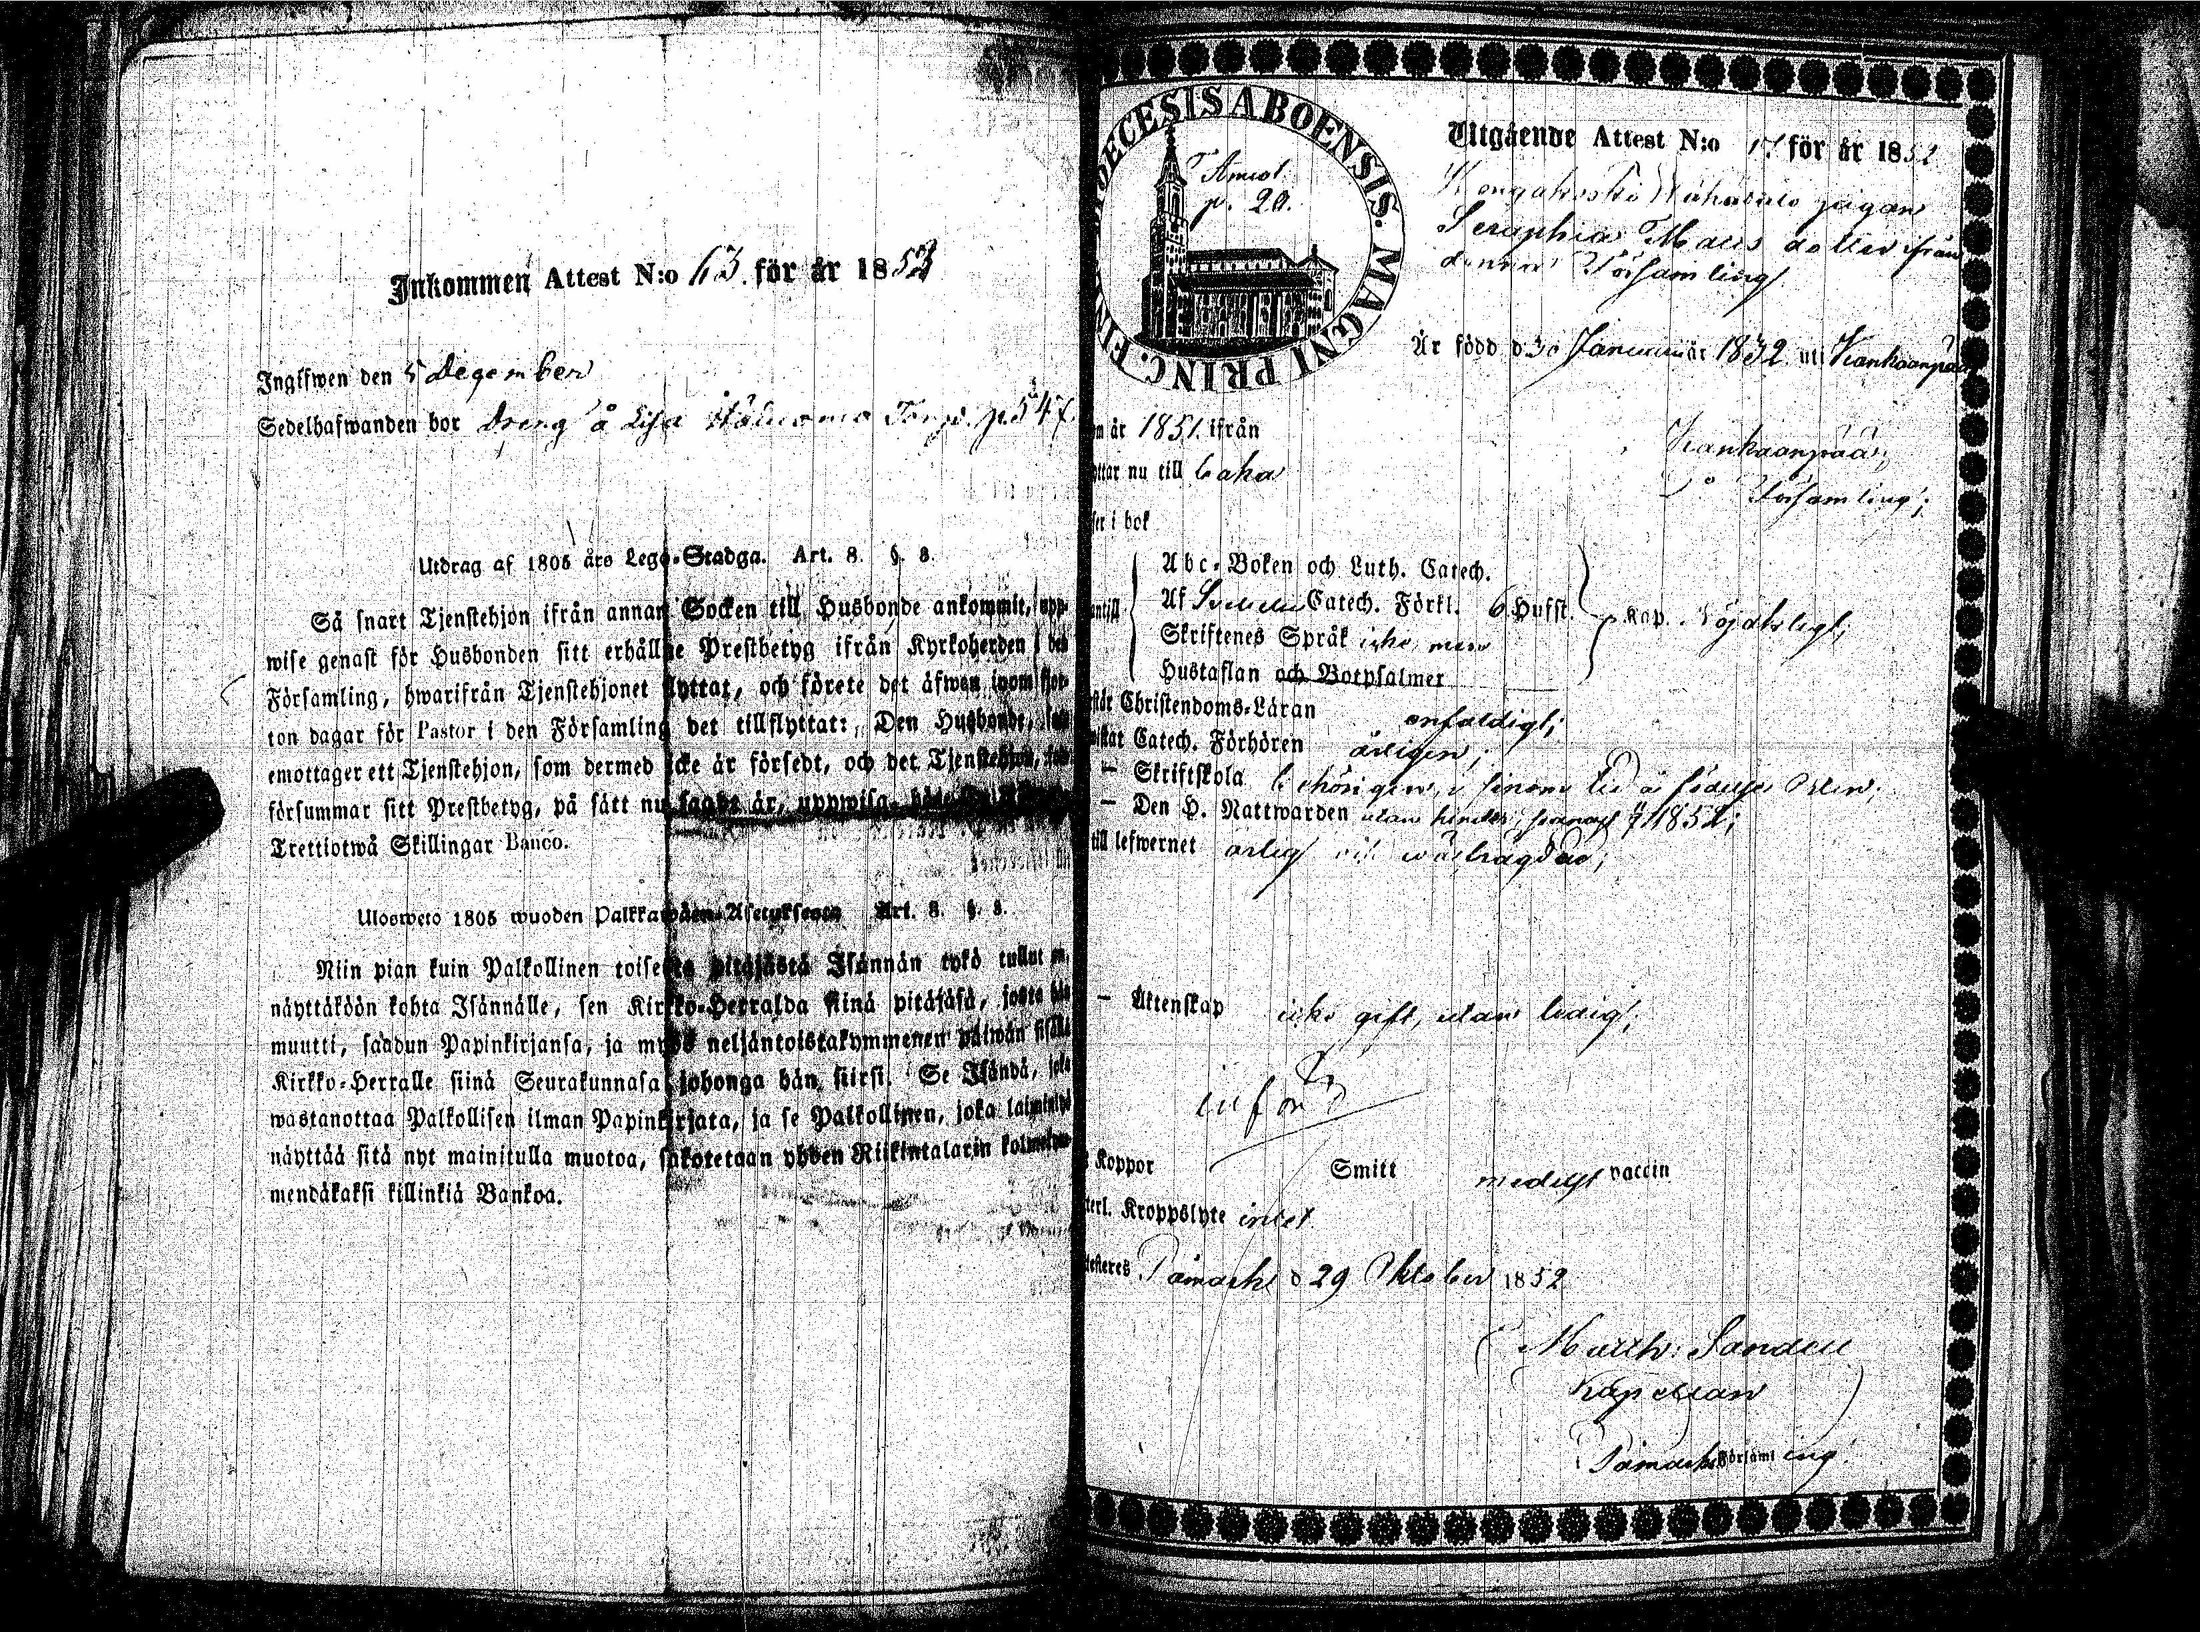 Inkommen Attest N:o 63. för år 1853
Ingifwen den 5 December
Sedelhafwanden bor Dreng å Lisa Torp. p. 547.
Utdrag af 1805 års Lego-Stadga. Art. 8. §. 8.
Så snart Tjenstehjon ifrån annan Socken till Husbonde ankommit, upp-
wise genast för Husbonden sitt erhållne Prestbetyg ifrån Kyrkoherden i den
Församling, hwarifrån Tjenstehjonet flyttat, och förete det äfwen inom fjor-
ton dagar för Pastor i den Församling det tillflyttat: Den Husbonde, som
emottager ett Tjenstehjon, som dermed icke är försedt, och det Tjenstehjon, som
försummar sitt Prestbetyg, på sätt nu sagdt är, uppwisa,
Trettiotwå Skillingar Banco.
Ulosweto 1805 wuoden Palkkawäen-Asetuksesta Art. 8. §. 8.
Niin pian kuin Palkollinen toisesta pitäjästä Isännän tykö tullut on,
näyttäköön kohta Isännälle, sen Kirkko-Herralda siinä pitäjäsä, josta hän
muutti, saadun Papinkirjansa, ja myös neljäntoistakymmenen päiwän sisällä
Kirkko-Herralle siinä Seurakunnasa johonga hän siirsi. Se Isändä, joka
wastanottaa Palkollisen ilman Papinkirjata, ja se Palkollinen, joka laiminlyö
näyttää sitä nyt mainitulla muotoa, sakotetaan yhden Riikintalarin kolmekym-
mendäkaksi killinkiä Bankoa.
DIOECESIS ABOENSIS. MAGNI PRINC. FINL.
p. 20.
Utgående Attest N:o 17. för år 1852
Pigan
Seraphia Matts dotter ifrån
denna Församling
Är född d 30 Januarii år 1832 uti Kankaanpää
om år 1851. ifrån Kankaanpää
yttar nu till Församling;
ser i bok
Abc-Boken och Luth. Catech.
antill Af Svebelii Catech. Förkl. 6 Hufst. Kap. Nöjaktligt;
Skriftenes Språk icke, men
Hustaflan och Botpsalmer
står Christendoms-Läran enfaldigt;
istat Catech. Förhören årligen;
— Skriftskola behörigen, i sinom tid å födelse Orten;
— Den H. Nattwarden utan hinder, 1852;
till lefwernet ärlig och
— Äktenskap icke gift, utan ledig;
införd
Koppor Smitt medelst vaccin
terl. Kroppslyte intet
testeres Påmark d 29 Oktober 1852
Matth: Sandell
Kapellan
Påmark Församling.